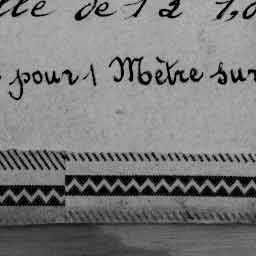 lle de 1 à 1,0
pour 1 Mètre sur